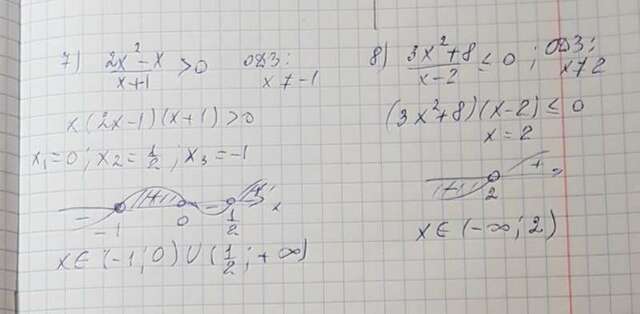 7) (2x² - x)/(x+1) > 0 ОДЗ: x ≠ -1
x(2x-1)(x+1) > 0
x₁ = 0; x₂ = 1/2; x₃ = -1
- + - + x
-1 0 1/2
x ∈ (-1; 0) ∪ (1/2; +∞)
8) (3x²+8)/(x-2) ≤ 0; ОДЗ: x ≠ 2
(3x²+8)(x-2) ≤ 0
x = 2
+
2
x ∈ (-∞; 2)